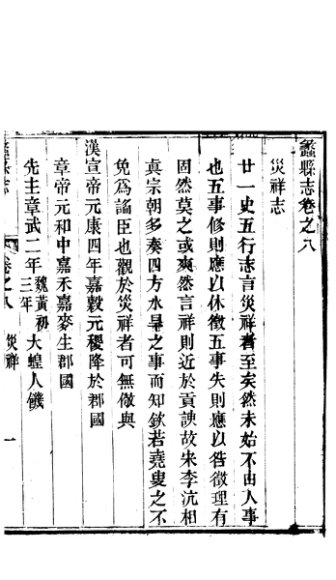 蠡縣志卷之八
災祥志
廿一史五行志言災祥者至矣然未始不由人事
也五事修則應以休徵五事失則應以咎徵理有
固然莫之或爽然言祥則近於貢諛故宋李沆相
真宗朝多奏四方水旱之事而知欽若堯叟之不
免為諂臣也觀於災祥者可無儆與
漢宣帝元康四年嘉穀元稷降於郡國
章帝元和中嘉禾嘉麥生郡國
先主章武二年魏黃初三年大蝗人饑
蠡縣志
卷之八
災祥
一